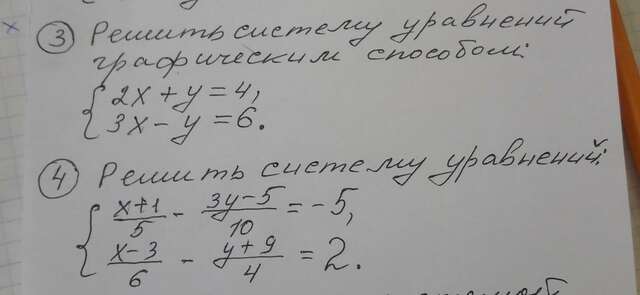 ③ Решить систему уравнений
графическим способом:
{ 2x + y = 4,
3x - y = 6.
④ Решить систему уравнений:
{ (x+1)/5 - (3y-5)/10 = -5,
(x-3)/6 - (y+9)/4 = 2.